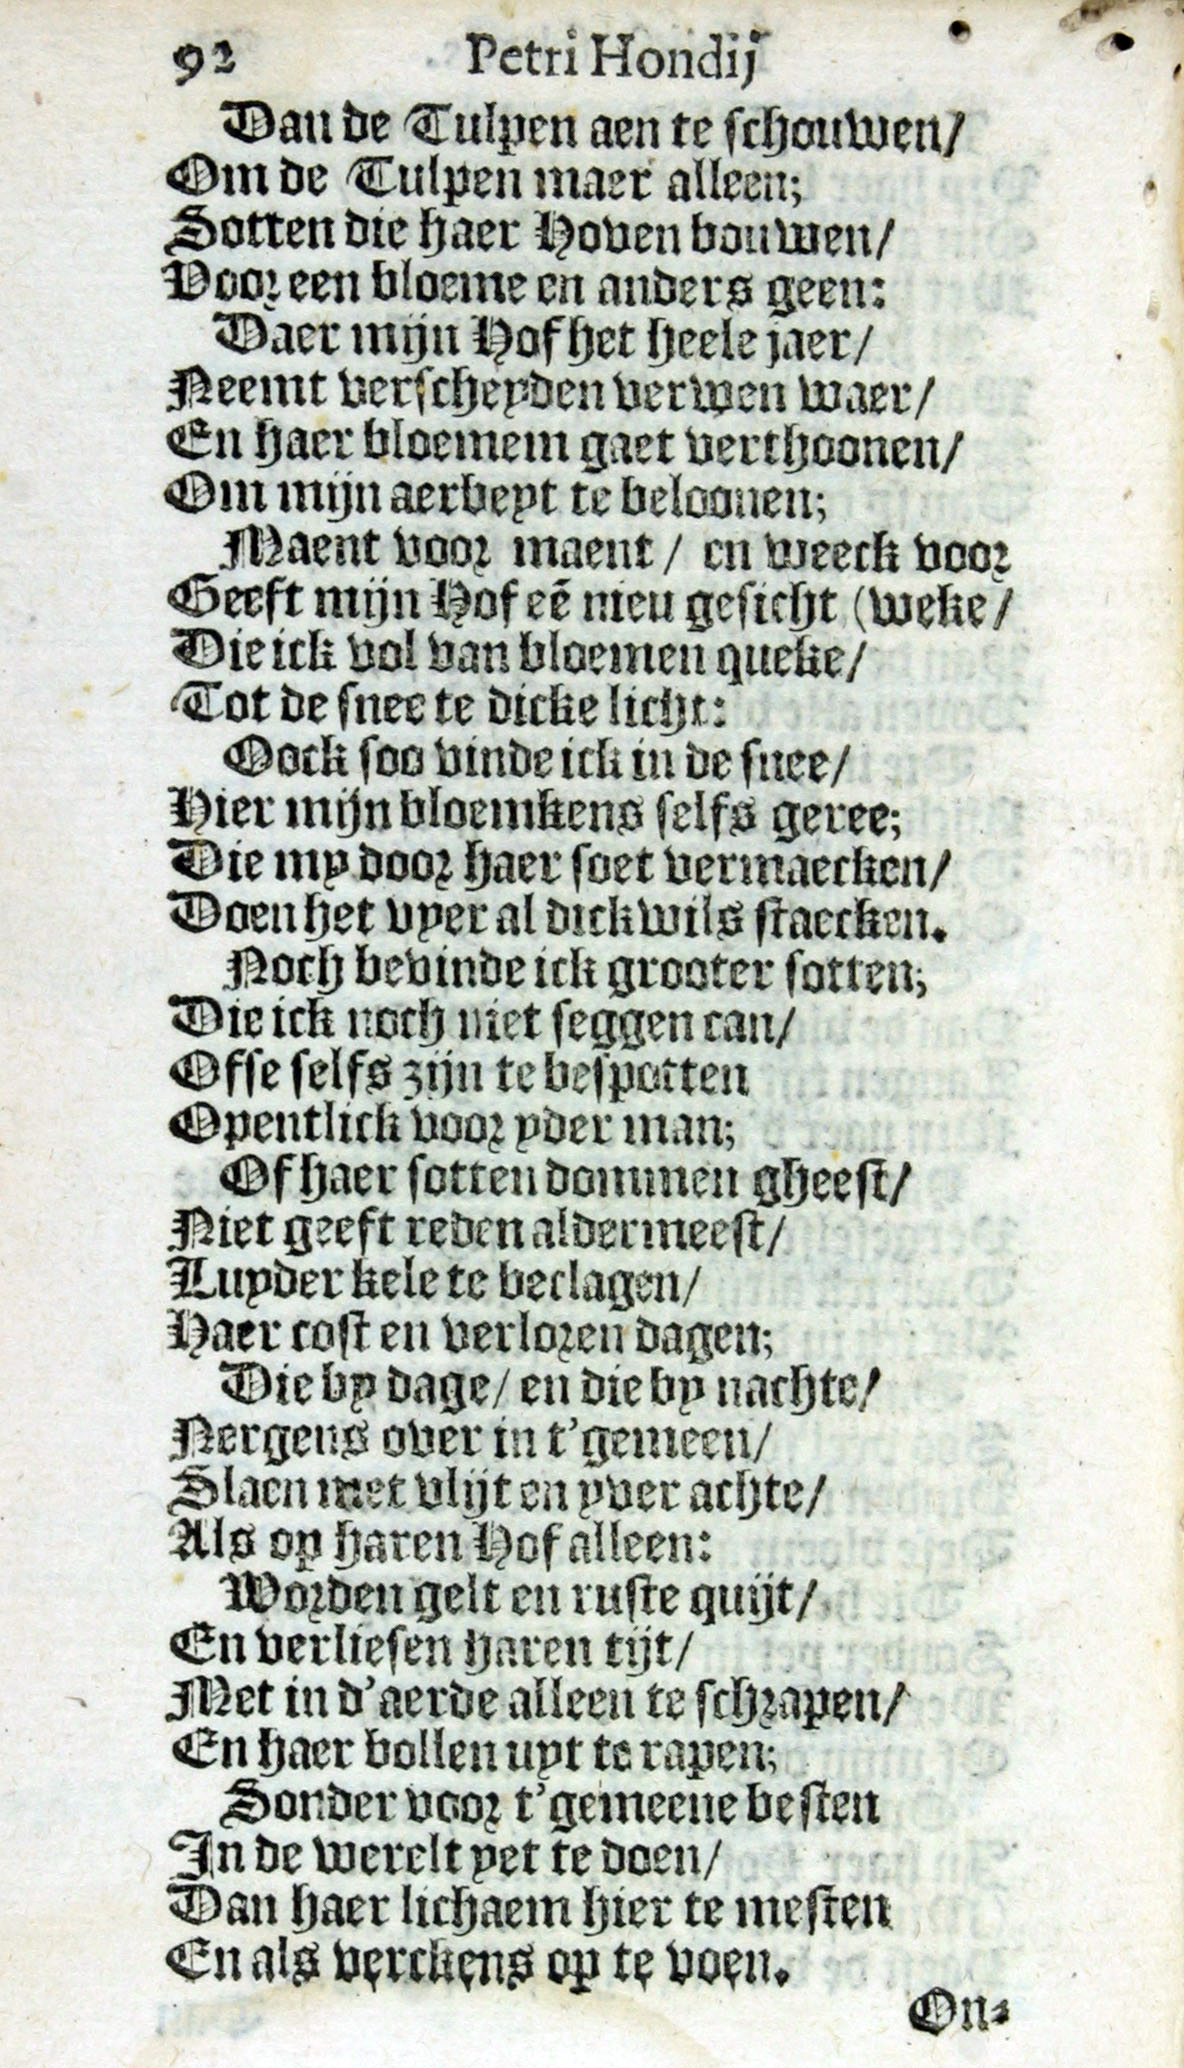 92 Petri Hondij
Dan de Tulpen aen te schouwen/
Om de Tulpen maer alleen;
Sotten die haer Hoven bouwen/
Voor een bloeme en anders geen:
Daer mijn Hof het heele jaer/
Neemt verscheyden verwen waer/
En haer bloemem gaet verthoonen/
Om mijn aerbeyt te beloonen;
Maent voor maent / en weeck voor
Geeft mijn Hof eē nieu gesicht (weke/
Die ick vol van bloemen queke/
Tot de snee te dicke licht:
Oock soo vinde ick in de snee/
Hier mijn bloemkens selfs geree;
Die my door haer soet vermaecken/
Doen het vyer al dickwils staecken.
Noch bevinde ick grooter sotten;
Die ick noch niet seggen can/
Ofse selfs zijn te bespotten
Opentlick voor yder man;
Of haer sotten dommen gheest/
Niet geeft reden aldermeest/
Luyder kele te beclagen/
Haer cost en verloren dagen;
Die by dage/ en die by nachte/
Nergens over in t'gemeen/
Slaen met vlijt en yver achte/
Als op haren Hof alleen:
Worden gelt en ruste quijt/
En verliesen haren tijt/
Met in d'aerde alleen te schrapen/
En haer bollen uyt te rapen;
Sonder voor t'gemeene besten
In de werelt yet te doen/
Dan haer lichaem hier te mesten
En als verckens op te voen.
On-